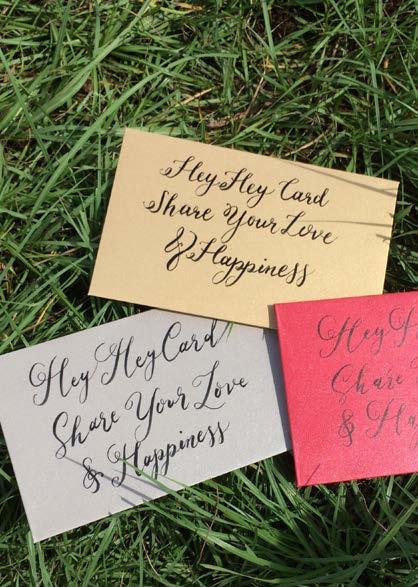 Hey Hey Card
Share Your Love
& Happiness
Hey Hey Card
Share Your Love
& Happiness
Hey
Share
&